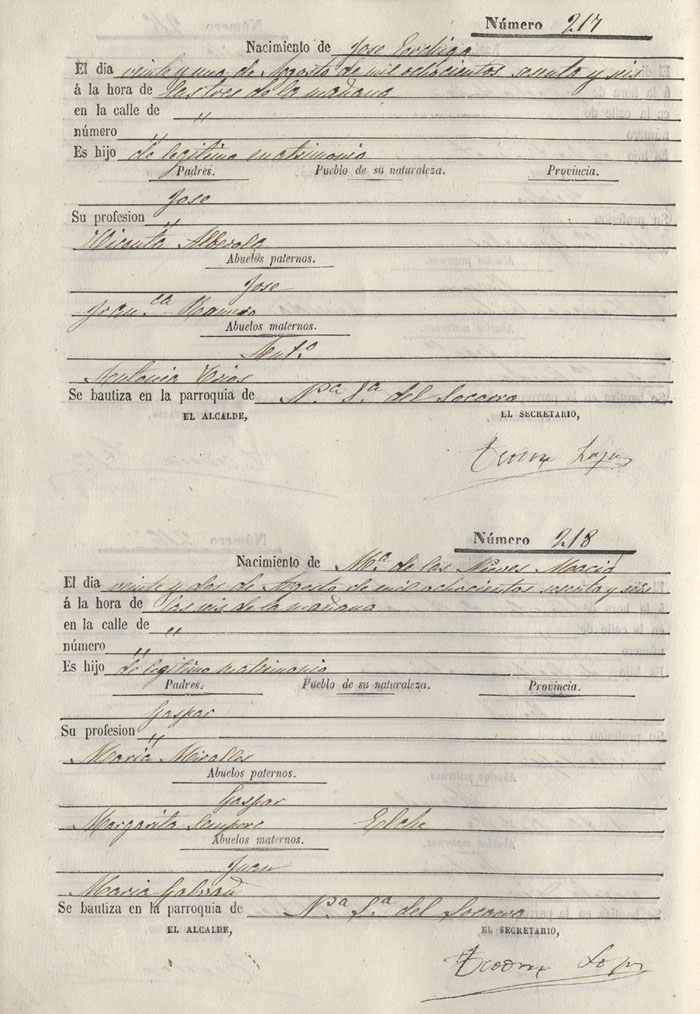 Número 217
Nacimiento de Jose Verdiga
El dia veinte y uno de Agosto de mil ochocientos sesenta y seis
á la hora de las tres de la mañana
en la calle de "
número "
Es hijo de legitimo matrimonio
Padres. Pueblo de su naturaleza. Provincia.
Jose
Su profesion "
Vicenta Alberola
Abuelos paternos.
Jose
Fran.ca Ramiro
Abuelos maternos.
Ant.o
Antonia
Se bautiza en la parroquia de N.a S.a del Socorro
EL ALCALDE, EL SECRETARIO,
Número 218
Nacimiento de M.a de las Nieves Macia
El dia veinte y dos de Agosto de mil ochocientos sesenta y seis
á la hora de las seis de la mañana
en la calle de "
número "
Es hijo de legitimo matrimonio
Padres. Pueblo de su naturaleza. Provincia.
Gaspar
Su profesion "
Maria Miralles
Abuelos paternos.
Gaspar
Margarita Sempere Elche
Abuelos maternos.
Juan
Maria Galvañ
Se bautiza en la parroquia de N.a S.a del Socorro
EL ALCALDE, EL SECRETARIO,